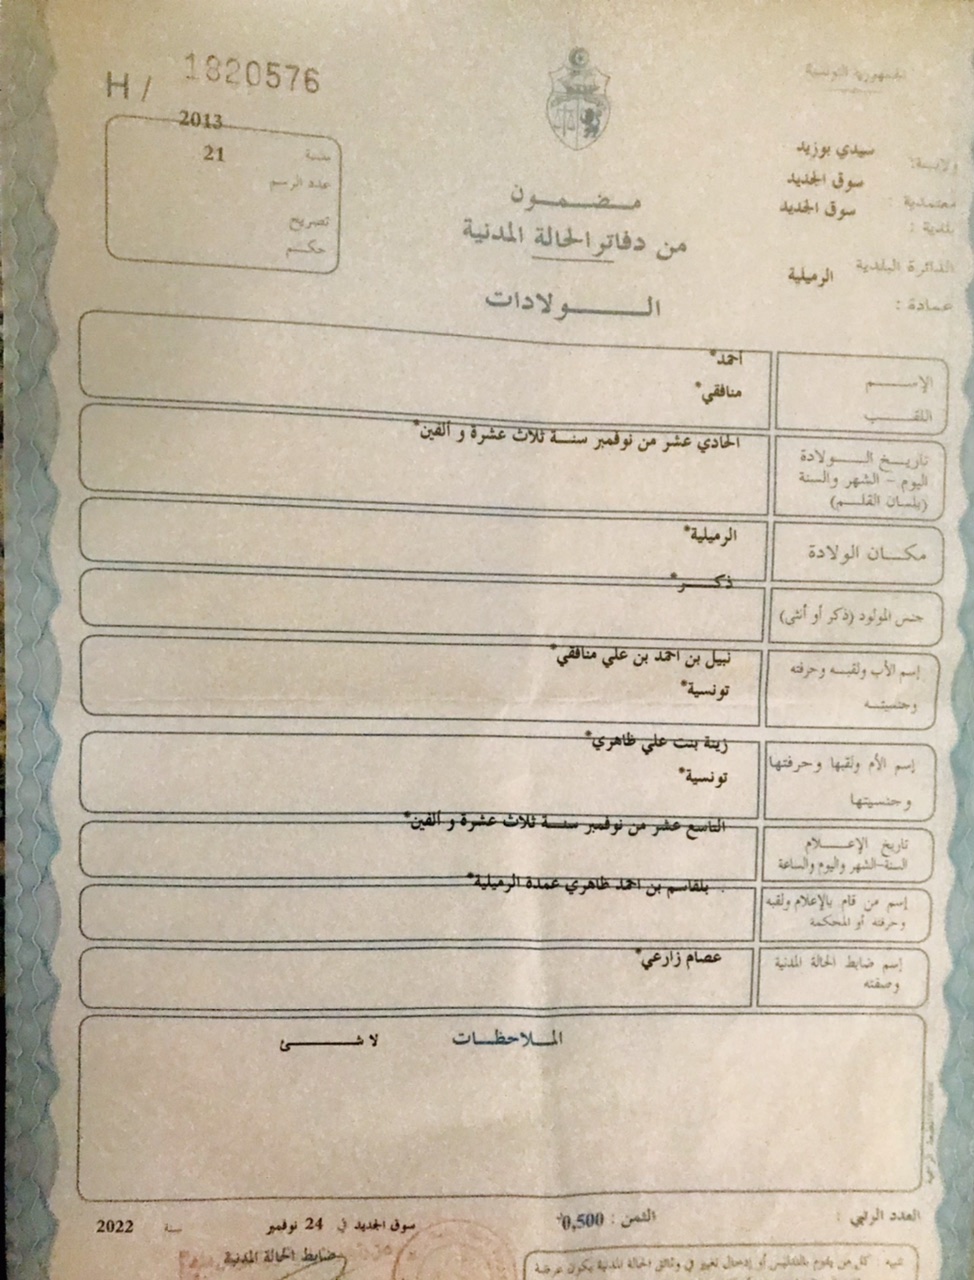 الجمهورية التونسية
H / 1820576
2013
سنة
21
عدد الرسم
تصريح
حكم
ولايـة: سيدي بوزيد
معتمدية : سوق الجديد
بلدية : سوق الجديد
الدائرة البلدية
عمادة : الرميلية
مضمون
من دفاتر الحالة المدنية
الولادات
الإسم
احمد*
اللقب
منافقي*
تاريخ الولادة
اليوم - الشهر والسنة
(بلسان القلم)
الحادي عشر من نوفمبر سنة ثلاث عشرة و ألفين*
مكان الولادة
الرميلية*
جنس المولود (ذكر أو أنثى)
ذكر*
إسم الأب ولقبه وحرفته
وجنسيته
نبيل بن احمد بن علي منافقي*
تونسية*
إسم الأم ولقبها وحرفتها
وجنسيتها
زينة بنت علي ظاهري*
تونسية*
تاريخ الإعلام
السنة-الشهر واليوم والساعة
التاسع عشر من نوفمبر سنة ثلاث عشرة و ألفين*
إسم من قام بالإعلام ولقبه
وحرفته أو المحكمة
بلقاسم بن احمد ظاهري عمدة الرميلية*
إسم ضابط الحالة المدنية
وصفته
عصام زارعي*
الملاحظات
لا شئ
العدد الرتبي :
الثمن : 0,500
سوق الجديد في 24 نوفمبر سنة 2022
ضابط الحالة المدنية
تنبيه : كل من يقوم بالتدليس أو إدخال تغيير في وثائق الحالة المدنية يكون عرضة